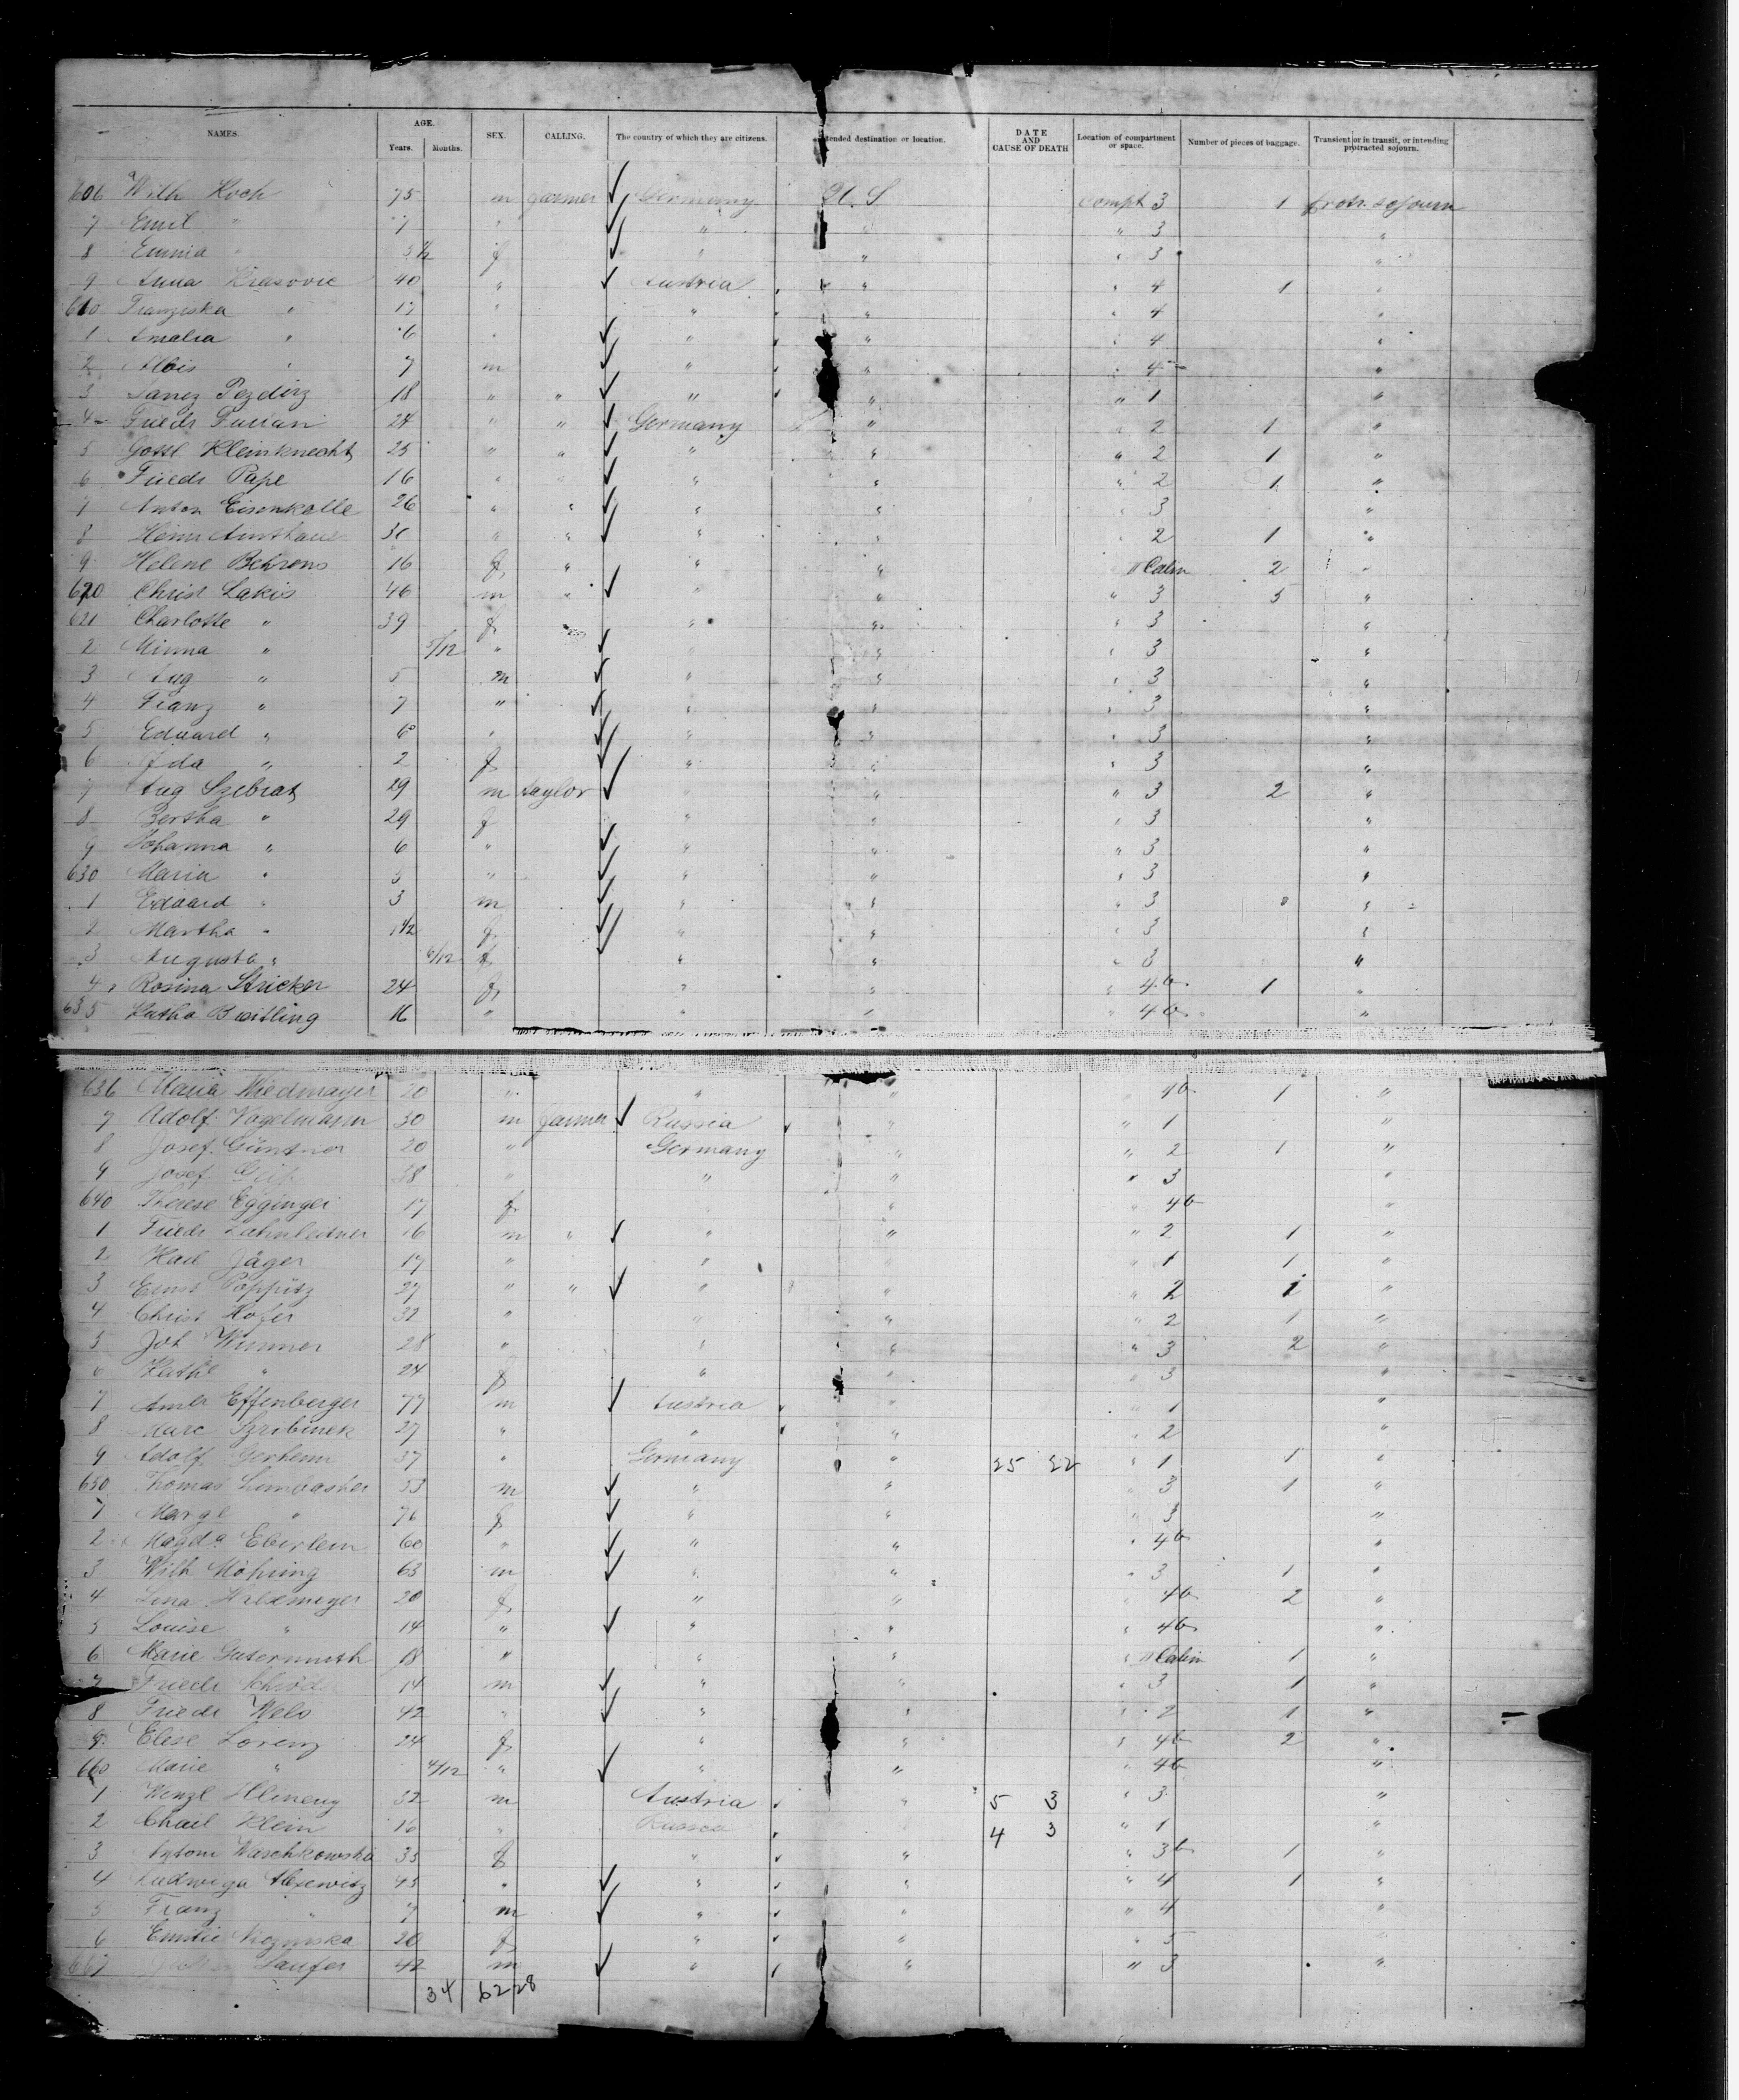 NAMES. AGE. SEX. CALLING. The country of which they are citizens. tended destination or location. DATE AND CAUSE OF DEATH Location of compartment or space. Number of pieces of baggage. Transient or in transit, or intending protracted sojourn.
Years. Months.
606 Wilh Koch 75 m farmer Germany U. S compt 3 1 protr. sojourn
7 Emil " 7 " " " " 3 "
8 Emma " 3 1/2 f " " " 3 "
9 Anna Krasovic 40 " Austria " " 4 1 "
610 Franziska " 17 " " " " 4 "
1 Amalia " 6 " " " " 4 "
2 Alois " 7 m " " " 4 "
3 Janez Pezdirz 18 " " " " " 1 "
4 Friedr Furian 24 " " Germany " " 2 1 "
5 Gottl Kleinknecht 25 " " " " " 2 1 "
6 Friedr Pape 16 " " " " " 2 1 "
7 Anton Eisenkolle 26 " " " " " 3 "
8 Heinr 30 " " " " " 2 1 "
9 Helene Behrens 16 f " " " II Cabin 2 "
620 Christ Lakis 46 m " " " " 3 3 "
621 Charlotte " 39 f " " " 3 "
2 Minna " 5/12 " " " " 3 "
3 Aug " 5 m " " " 3 "
4 Franz " 7 " " " " 3 "
5 Eduard " 6 " " " " 3 "
6 Ida " 2 f " " " 3 "
7 Aug Szebrat 29 m taylor " " " 3 2 "
8 Bertha " 29 f " " " 3 "
9 Johanna " 6 " " " " 3 "
630 Maria " 5 " " " " 3 "
1 Eduard " 3 m " " " 3 "
2 Martha " 1 1/2 f " " " 3 "
3 Augusta " 6/12 f " " " 3 "
4 Rosina Stricker 24 f " " " 4b 1 "
635 Katha Breitling 16 " " " " 4b "
636 Maria Wiedmayer 20 " " " 4b 1 "
7 Adolf Vogelmann 30 m farmer Russia " " 1 "
8 Josef Güntner 20 " Germany " " 2 1 "
9 Josef 38 " " " " 3 "
640 Therese Egginger 17 f " " 4b "
1 Friedr Zahnleitner 16 m " " " " 2 1 "
2 Karl Jäger 17 " " " " 1 1 "
3 Ernst Poppitz 27 " " " " " 2 1 "
4 Christ Hofer 32 " " " " 2 1 "
5 Joh Wimmer 28 " " " " 3 2 "
6 Kathe " 24 f " " " 3 "
7 Effenberger 77 m Austria " " 1 "
8 Marc Szribinek 27 " " " " 2 "
9 Adolf 37 " Germany " 25 22 " 1 1 "
650 Thomas Lembacher 53 m " " " 3 1 "
1 Margt " 76 f " " " 3 "
2 Magda Eberlein 60 " " " " 4b "
3 Wilh Möhring 63 m " " " 3 1 "
4 Lina 20 f " " " 4b 2 "
5 Louise " 14 " " " " 4b "
6 Marie Gutermuth 18 " " " " II Cabin 1 "
7 Friedr Schröder 14 m " " " 3 1 "
8 Friedr Wels 42 " " " " 2 1 "
9 Elise Lorenz 24 f " " " 4b 2 "
660 Marie " 4/12 " " " 4b "
1 Wenzl Hlineny 32 m Austria " 5 3 " 3 "
2 Chail Klein 16 " Russia 4 3 " 1 "
3 Antoni Waschkowska 35 f " " " 3b 1 "
4 Ludwiga Alexewitz 45 " " " " 4 1 "
5 Franz " 7 m " " " 4 "
6 Emilie 20 f " " 5 "
667 Laufer 42 m " " " 3 "
34 62 28